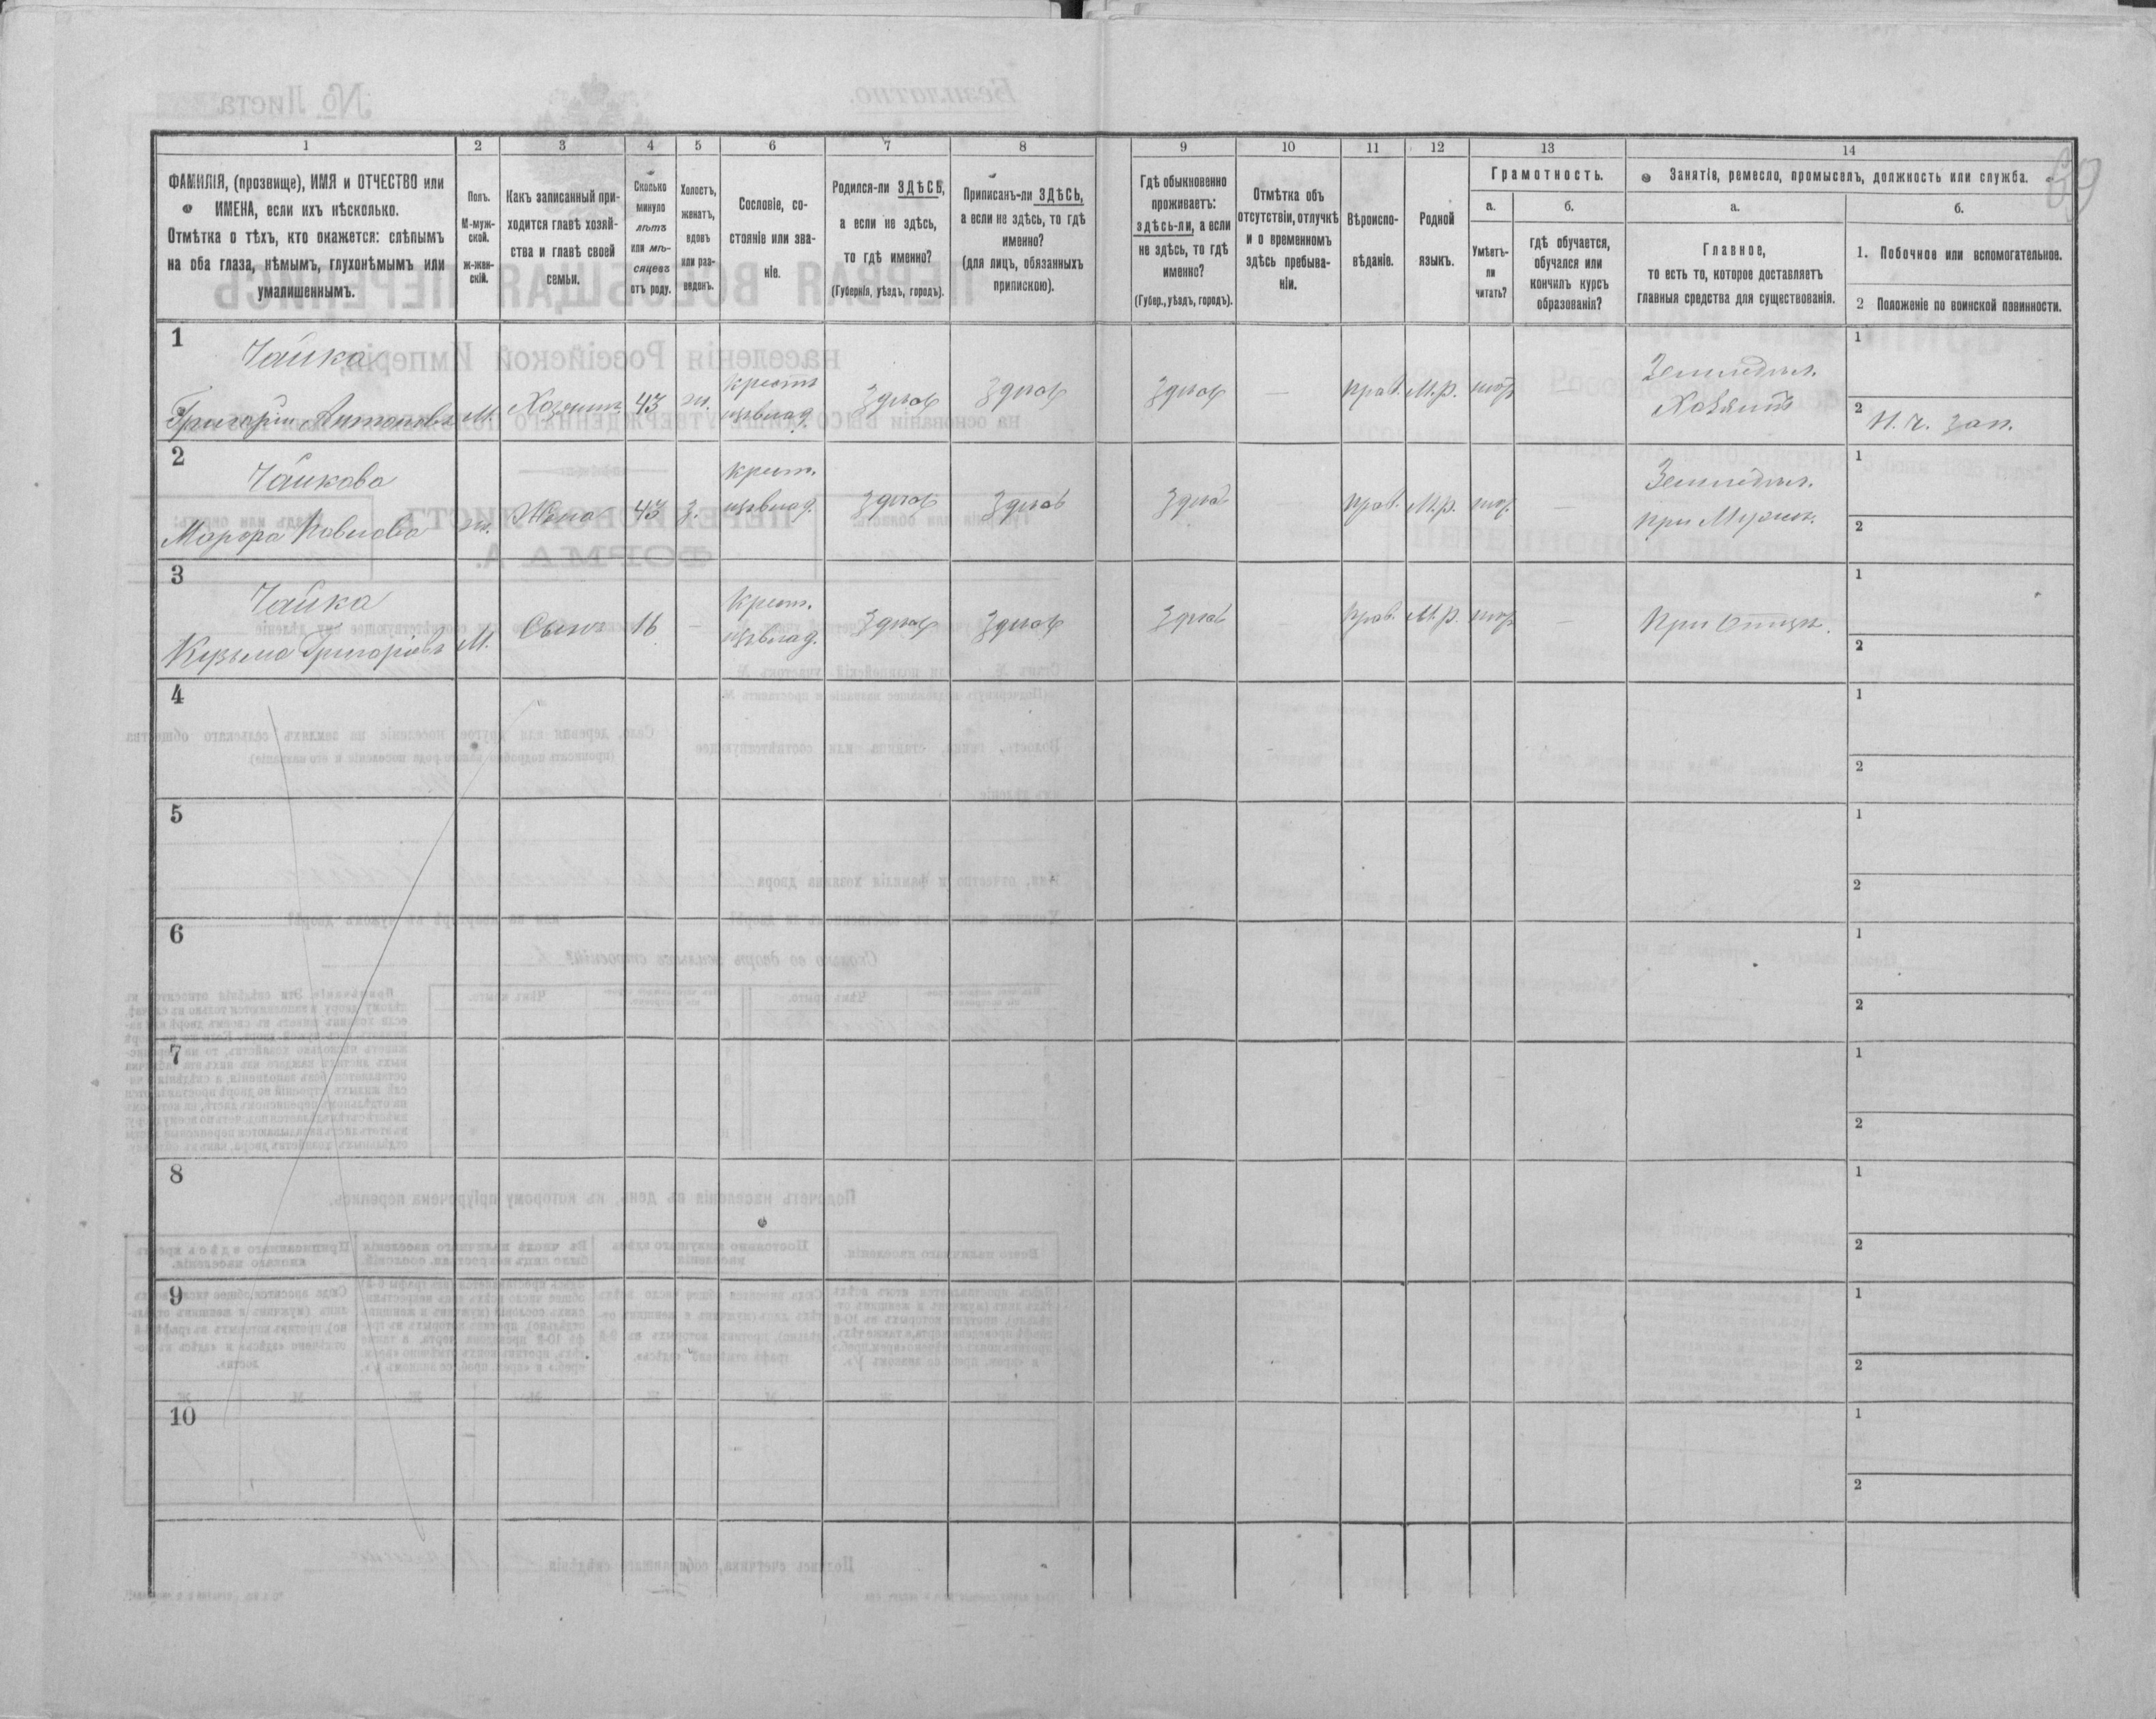 1 2 3 4 5 6 7 8 9 10 11 12 13 14
ФАМИЛІЯ, (прозвище), ИМЯ и ОТЧЕСТВО или
ИМЕНА, если ихъ нѣсколько.
Отмѣтка о тѣхъ, кто окажется: слѣпымъ
на оба глаза, нѣмымъ, глухонѣмымъ или
умалишеннымъ.
Полъ.
М-муж-
ской.
ж-жен-
скій.
Какъ записанный при-
ходится главѣ хозяй-
ства и главѣ своей
семьи.
Сколько
минуло
лѣтъ
или мѣ-
сяцевъ
отъ роду.
Холостъ,
женатъ,
вдовъ
или раз-
веденъ.
Сословіе, со-
стояніе или зва-
ніе.
Родился-ли ЗДѢСЬ,
а если не здѣсь,
то гдѣ именно?
(Губернія, уѣздъ, городъ).
Приписанъ-ли ЗДѢСЬ,
а если не здѣсь, то гдѣ
именно?
(для лицъ, обязанныхъ
припискою).
Гдѣ обыкновенно
проживаетъ:
здѣсь-ли, а если
не здѣсь, то гдѣ
именно?
(Губер., уѣздъ, городъ).
Отмѣтка объ
отсутствіи, отлучкѣ
и о временномъ
здѣсь пребыва-
ніи.
Вѣроиспо-
вѣданіе.
Родной
языкъ.
Грамотность.
а.
Умѣетъ-
ли
читать?
б.
гдѣ обучается,
обучался или
кончилъ курсъ
образованія?
Занятіе, ремесло, промыселъ, должность или служба.
а.
Главное,
то есть то, которое доставляетъ
главныя средства для существованія.
б.
1. Побочное или вспомогательное.
2 Положеніе по воинской повинности.
69
1
Чайка
Григорій Антоновъ М. Хозяинъ 43 ж. крест. Здѣсь Здѣсь Здѣсь — прав. М.р. —
Земледѣл.
Хозяинъ
1
2 Н. Ч. зап.
2
Чайкова
Павлова ж. Жена 43 З. крест. Здѣсь Здѣсь Здѣсь — прав. М.р. —
Земледѣл.
при Мужѣ.
1
2
3
Чайка
Кузьма Григорьевъ М. Сынъ 16 — крест. Здѣсь Здѣсь Здѣсь — прав. М.р. —
При Отцѣ.
1
2
4
1
2
5
1
2
6
1
2
7
1
2
8
1
2
9
1
2
10
1
2